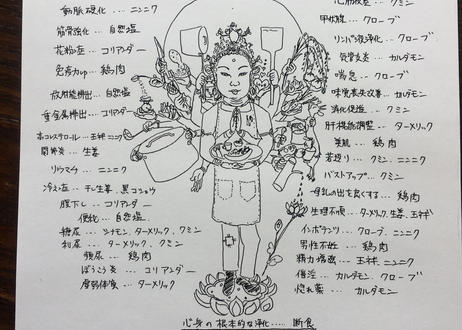 動脈硬化 ... ニンニク
筋骨強化 ... 自然塩
花粉症 ... コリアンダー
免疫力up ... 鶏肉
放射能排出 ... 自然塩
重金属排出 ... コリアンダー
高コレステロール ... 玉ネギ ニンニク
関節炎 ... 生姜
リウマチ ... ニンニク
冷え症 ... 干し生姜、黒コショウ
腹下し ... コリアンダー
便秘 ... 自然塩
糖尿 ... シナモン、ターメリック、クミン
利尿 ... ターメリック、クミン
頻尿 ... 鶏肉
ぼうこう炎 ... コリアンダー
虚弱体質 ... ターメリック
クミン
甲状腺 ... クローブ
リンパ液浄化 ... クローブ
気管支炎 ... カルダモン
喘息 ... クローブ
味覚喪失改善 ... カルダモン
消化促進 ... クミン
肝機能調整 ... ターメリック
美肌 ... 鶏肉
若返り ... クミン、ニンニク
バストアップ ... クミン
母乳の出を良くする ... 鶏肉
生理不順 ... ターメリック、生姜、玉ネギ
インポテンツ ... クローブ、ニンニク
男性不妊 ... 鶏肉
精力増強 ... 玉ネギ、ニンニク
催淫 ... カルダモン、クローブ
惚れ薬 ... カルダモン
心身の根本的な浄化 ...... 断食